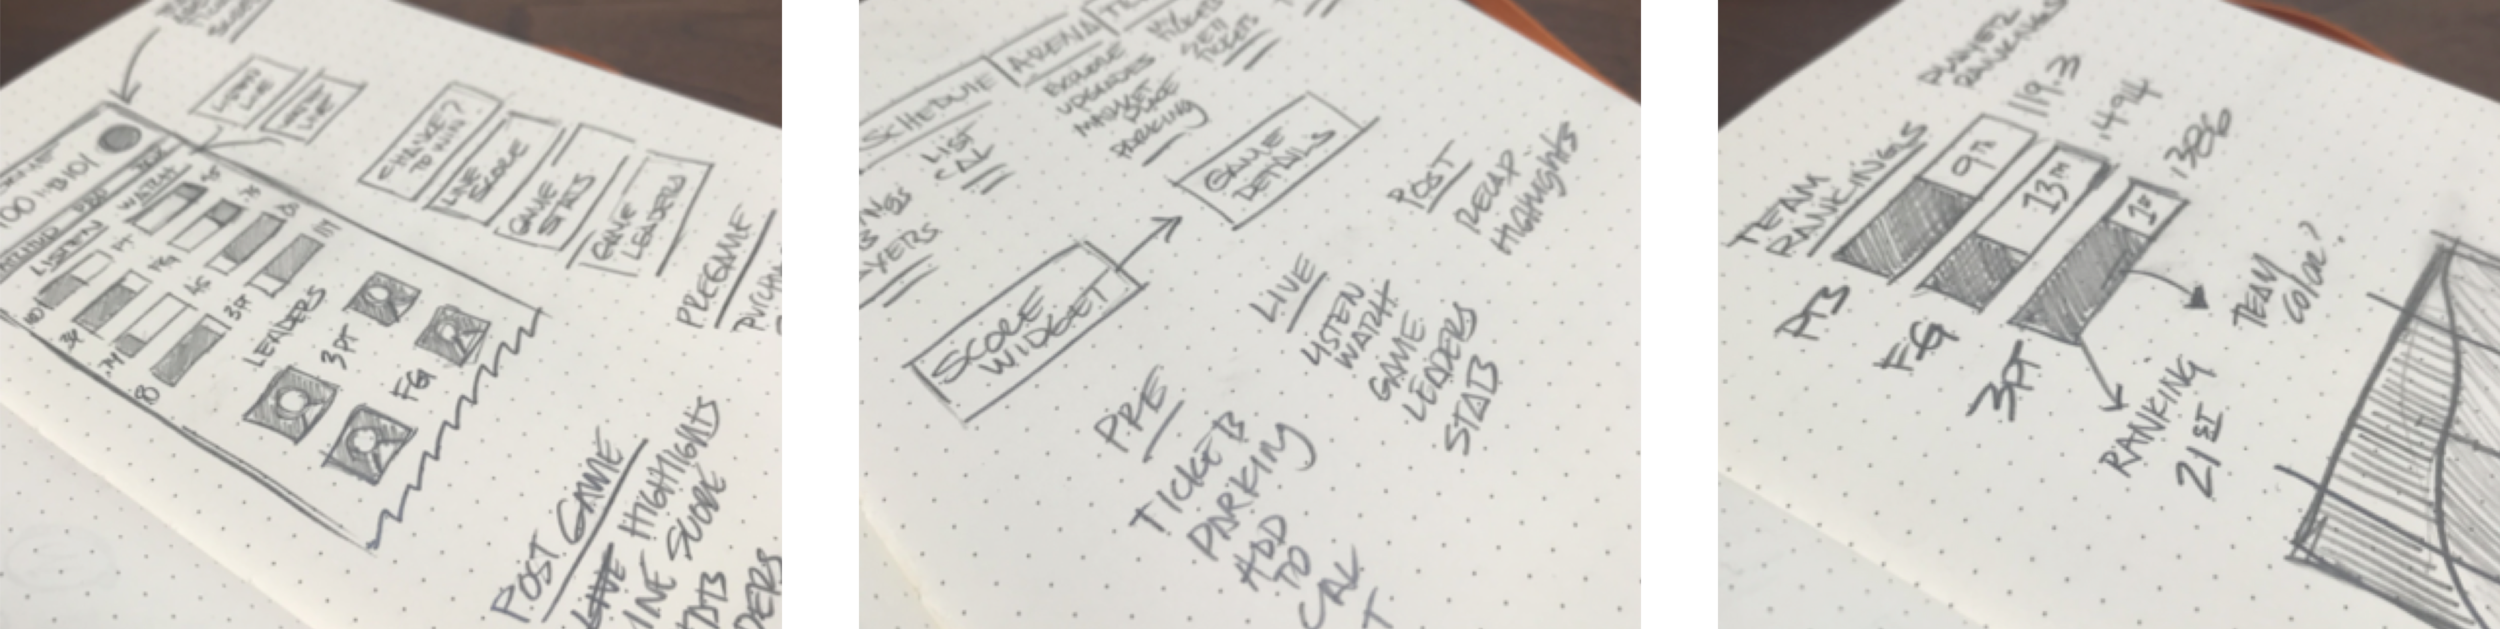 LISTEN
LIVE
WATCH
LIVE
CHANCE?
TO WIN
LINE
SCORE
GAME
STATS
GAME
LEADERS
PREGAME
100
101
WATCH
LISTEN
PT
FG
3PT
LEADERS
3PT
FG
POST GAME
LIVE HIGHLIGHTS
LINE SCORE
SCHEDULE
LIST
CAL
ARENA
EXPLORE
UPGRADES
MARKET
PLACE
PARKING
MY
TICKETS
SELL
TICKETS
GAME
DETAILS
SCORE
WIDGET
POST
RECAP
HIGHLIGHTS
LIVE
LISTEN
WATCH
GAME
LEADERS
STATS
PRE
TICKETS
PARKING
ADD
TO
CAL
PLAYER
RANKINGS
TEAM
RANKINGS
9TH
119.3
13TH
.494
1ST
.386
PTS
FG
3PT
TEAM
COLOR?
RANKING
21ST